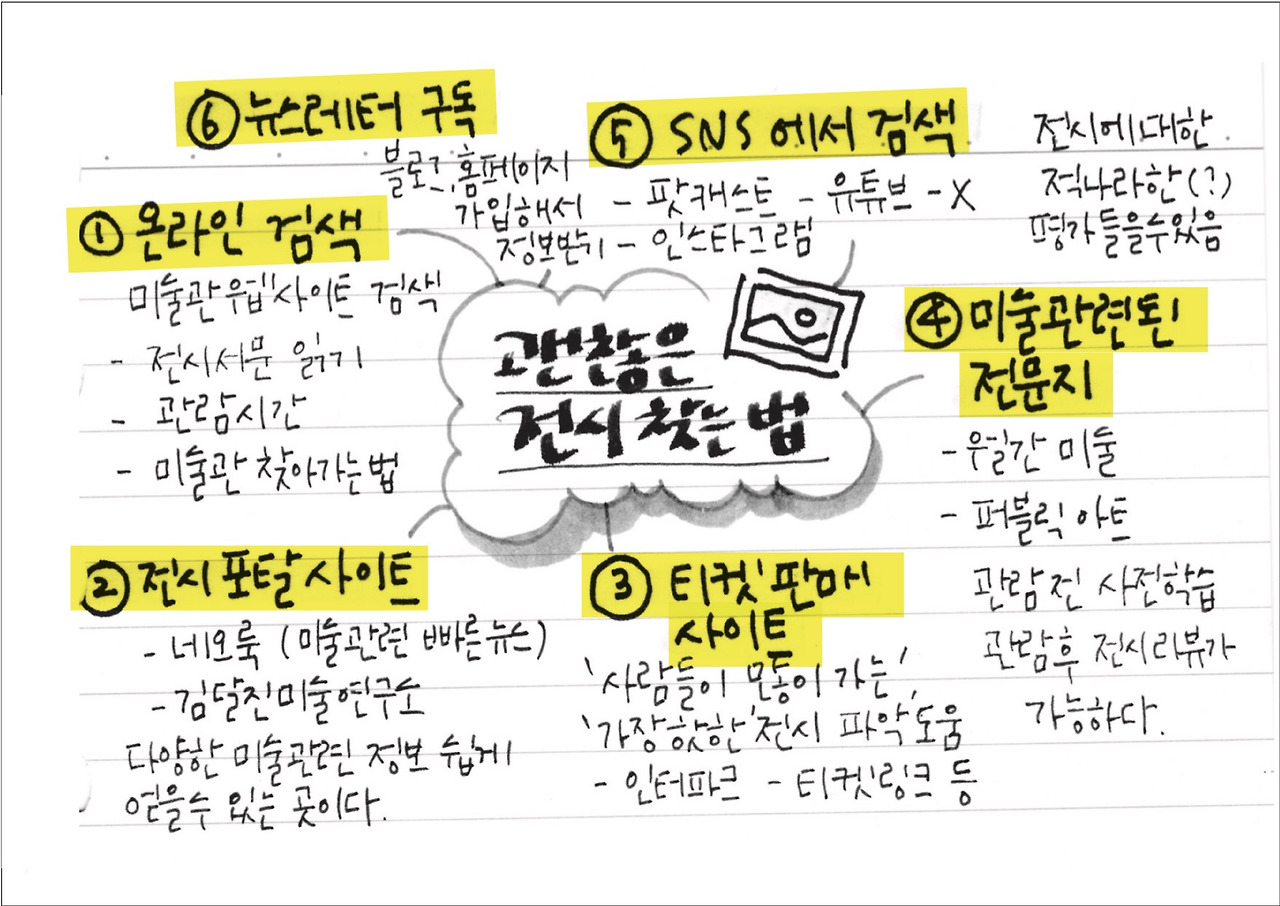 괜찮은
전시 찾는 법
① 온라인 검색
미술관 웹사이트 검색
- 전시서문 읽기
- 관람시간
- 미술관 찾아가는 법
② 전시 포탈 사이트
- 네오룩 (미술관련 빠른뉴스)
- 김달진미술연구소
다양한 미술관련 정보 쉽게
얻을수 있는 곳이다.
③ 티켓 판매
사이트
'사람들이 많이 가는'
'가장 핫한' 전시 파악 도움
- 인터파크 - 티켓링크 등
④ 미술관련된
전문지
- 월간 미술
- 퍼블릭 아트
관람 전 사전학습
관람후 전시리뷰가
가능하다.
⑤ SNS 에서 검색
- 팟캐스트 - 유튜브 - X
- 인스타그램
전시에 대한
적나라한(?)
평가 들을수 있음
⑥ 뉴스레터 구독
블로그, 홈페이지
가입해서
정보받기